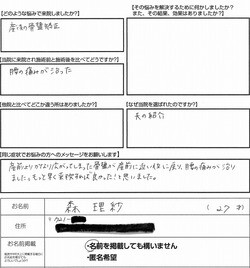 【どのような悩みで来院しましたか?】
産後の骨盤矯正
【その悩みを解決するために何かしましたか?
また、その結果、効果はありましたか?】
【当院に来院され施術前と施術後を比べてどうですか?】
腰の痛みが治った
【他院と比べてどこか違う所はありましたか?】
【なぜ当院を選ばれたのですか?】
夫の紹介
【同じ症状でお悩みの方へのメッセージをお願いします】
産前よりかなり広がってしまった骨盤が産前に近い状態に戻り、腰の痛みが治り
ました。もっと早く来院すれば良かったと思いました。
お名前
森 理紗
(27才)
住所
お名前掲載
・名前を掲載しても構いません
・匿名希望